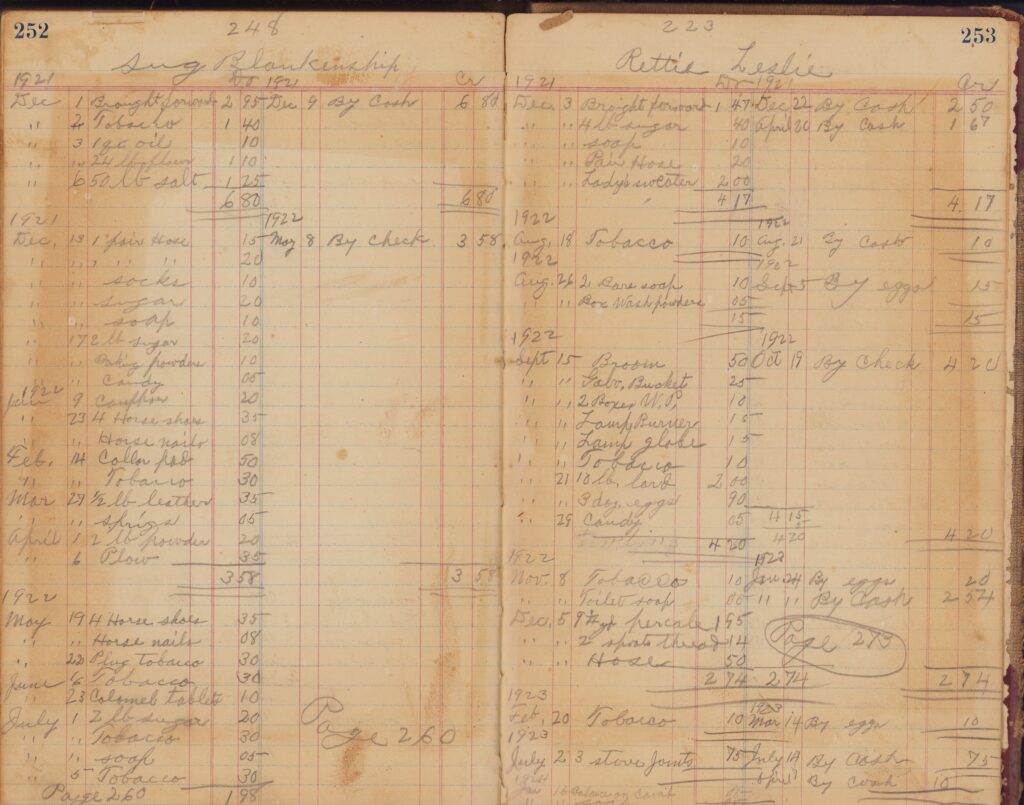 252
248
Sug Blankenship
1921 Dr 1921 Cr
Dec 1 Brought forward 2 95 Dec 9 By Cash 6 80
" 2 Tobacco 1 40
" 3 1 qt oil 10
" " 24 lb flour 1 10
" 6 50 lb salt 1 25
6 80 6 80
1921 1922
Dec. 13 1 pair Hose 15 May 8 By Check 3 58
" " " " " 20
" " socks 10
" " sugar 20
" " soap 10
" 17 2 lb sugar 20
" " Baking powders 10
" " Candy 05
1922
Jan 9 Camphor 20
" 23 4 Horse shoes 35
" " Horse nails 08
Feb. 14 Collar pad 50
" " Tobacco 30
Mar 27 1/2 lb leather 35
" " sprigs 05
April 1 2 lb powder 20
" 6 Plow 35
3 58 3 58
1922
May 19 4 Horse shoes 35
" " Horse nails 08
" 22 Plug tobacco 30
June 6 Tobacco 30
" 23 Colomel tablets 10
July 1 2 lb sugar 20
" " Tobacco 30
" " soap 05
" 5 Tobacco 30
Page 260
Page 260 1 98
253
223
Rettie Leslie
1921 Dr 1921 Cr
Dec. 3 Brought forward 1 47 Dec 22 By Cash 2 50
" " 4 lb sugar 40 April 20 By Cash 1 67
" " soap 10
" " Pair Hose 20
" " Lady's sweater 2 00
4 17 4 17
1922 1922
Aug. 18 Tobacco 10 Aug. 21 By Cash 10
1922 1922
Aug. 26 2 Bars soap 10 Sept 5 By eggs 15
" " Box Wash powders 05
15 15
1922 1922
Sept 15 Broom 50 Oct 19 By Check 4 20
" " Galv. Bucket 25
" " 2 Boxes W.P. 10
" " Lamp Burner 15
" " Lamp globe 15
" " Tobacco 10
" 21 10 lb. lard 2 00
" " 3 doz eggs 90
" 29 Candy 05 4 15
4 20 4 20 4 20
1922 1923
Nov. 8 Tobacco 10 Jan 24 By eggs 20
" " Toilet soap 05 " " By Cash 2 54
Dec. 5 yd percale 1 95
" " 2 spools thread 14
" " Hose 50
Page 273
2 74 2 74 2 74
1923 1923
Feb. 20 Tobacco 10 Mar 14 By eggs 10
1923
July 2 3 stove Joints 75 July 14 By Cash 75
1924 April By Cash 10
Jan 16